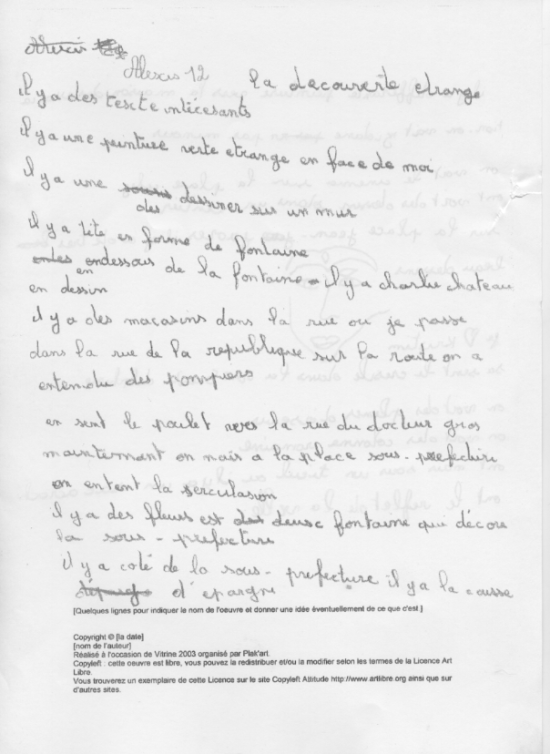 Alexis 12 la decouverte etrange
il y a des texte intéresants
il y a une peinture verte etrange en face de moi
il y a une des dessiner sur un mur
il y a tête en forme de fontaine
en dessous de la fontaine il y a charlie chateau
en dessin
il y a des magasins dans la rue ou je passe
dans la rue de la republique sur la route on a
entendu des pompiers
on sent le poulet vers la rue du docteur gros
maintennant on nais a la place sous-prefecture
on entent la serculasion
il y a des fleurs est deuse fontaine que décore
la sous-prefecture
il y a coté de la sous-prefecture il y a la caisse
d'epargne
[Quelques lignes pour indiquer le nom de l'oeuvre et donner une idée éventuellement de ce que c'est ]
Copyright © [la date]
[nom de l'auteur]
Réalisé à l'occasion de Vitrine 2003 organisé par Plak'art.
Copyleft : cette oeuvre est libre, vous pouvez la redistribuer et/ou la modifier selon les termes de la Licence Art
Libre.
Vous trouverez un exemplaire de cette Licence sur le site Copyleft Attitude http://www.artlibre.org ainsi que sur
d'autres sites.